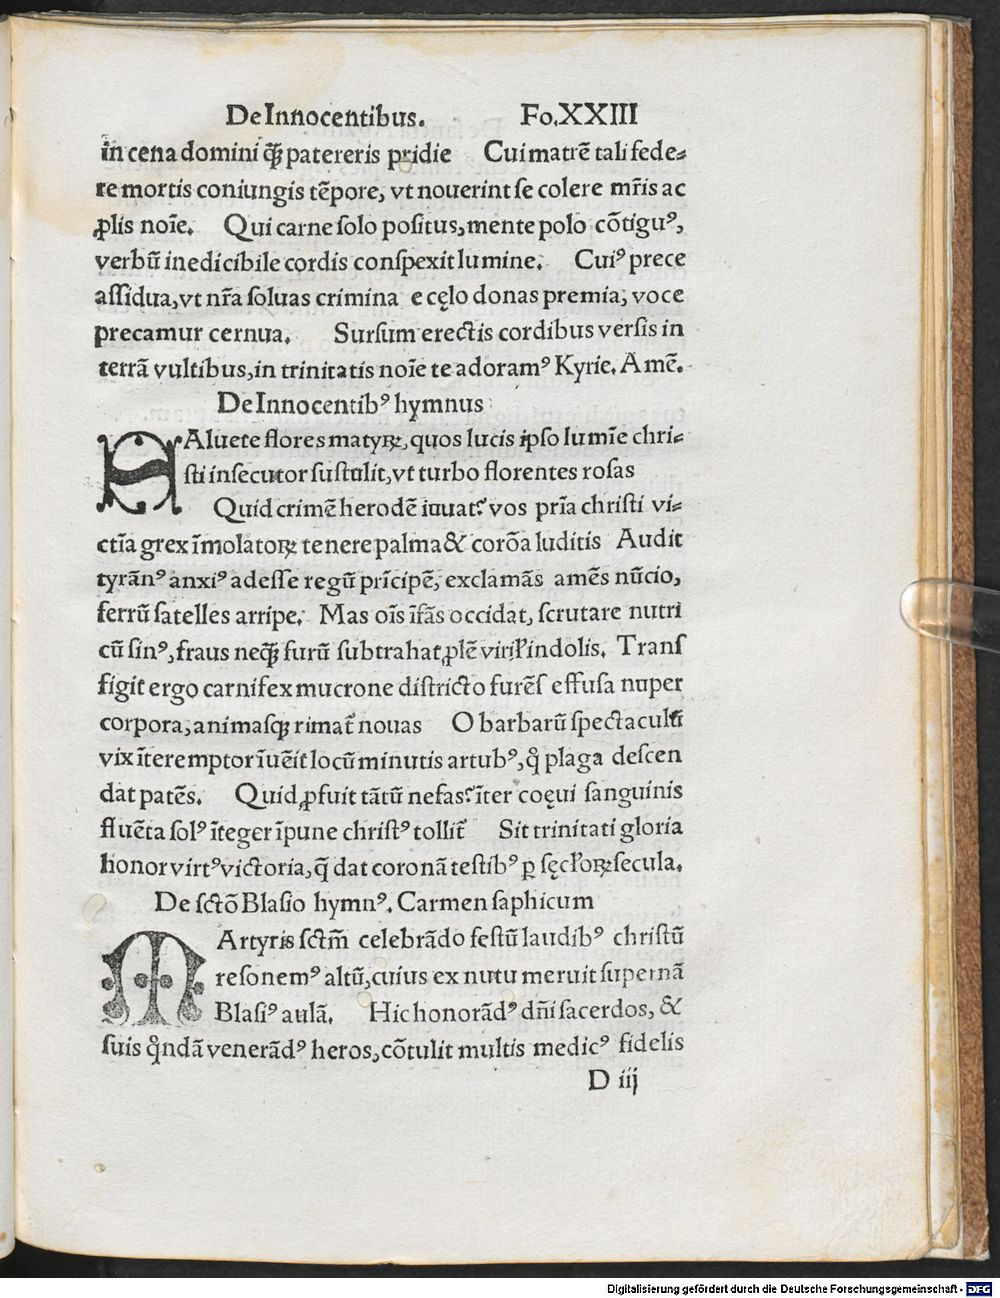 De Innocentibus. Fo.XXIII
in cena domini qꝫ̃ patereris pridie Cui matrẽ tali fede⸗
re mortis coniungis tẽpore, vt nouerint se colere mr̃is ac
ꝓlis noĩe. Qui carne solo positus, mente polo cõtiguꝰ,
verbũ inedicibile cordis conspexit lumine. Cuiꝰ prece
assidua, vt nr̃a soluas crimina e cęlo donas premia, voce
precamur cernua. Sursum erectis cordibus versis in
terrã vultibus, in trinitatis noĩe te adoramꝰ Kyrie. Amẽ.
De Innocentibꝰ hymnus
SAluete flores matyꝝ, quos lucis ipso lumĩe chri⸗
sti insecutor sustulit, vt turbo florentes rosas
Quid crimẽ herodẽ iuuat? vos prĩa christi vi⸗
ctĩa grex ĩmolatoꝝ tenere palma & corõa luditis Audit
tyrãnꝰ anxiꝰ adesse regũ prĩcipẽ, exclamãs amẽs nũcio,
ferrũ satelles arripe. Mas oĩs ĩfãs occidat, scrutare nutri
cũ sinꝰ, fraus neqꝫ̃ furũ subtrahat ꝓlẽ viril̃ indolis. Trans
figit ergo carnifex mucrone districto furẽs effusa nuper
corpora, animasqꝫ rimat̃ nouas O barbarũ spectaculũ
vix ĩteremptor ĩuẽit locũ minutis artubꝰ, q̊ plaga descen
dat patẽs. Quid ꝓfuit tãtũ nefas? ĩter coęui sanguinis
fluẽta solꝰ ĩteger ĩpune christꝰ tollit̃ Sit trinitati gloria
honor virtꝰ victoria, q̃ dat coronã testibꝰ ꝑ sęcl̃oꝝ secula.
De sctõ Blasio hymnꝰ. Carmen saphicum
MArtyris sctm̃ celebrãdo festũ laudibꝰ christũ
resonemꝰ altũ, cuius ex nutu meruit supernã
Blasiꝰ aulã. Hic honorãdꝰ dñi sacerdos, &
suis q̊ndã venerãdꝰ heros, cõtulit multis medicꝰ fidelis
D iij
Digitalisierung gefördert durch die Deutsche Forschungsgemeinschaft - DFG